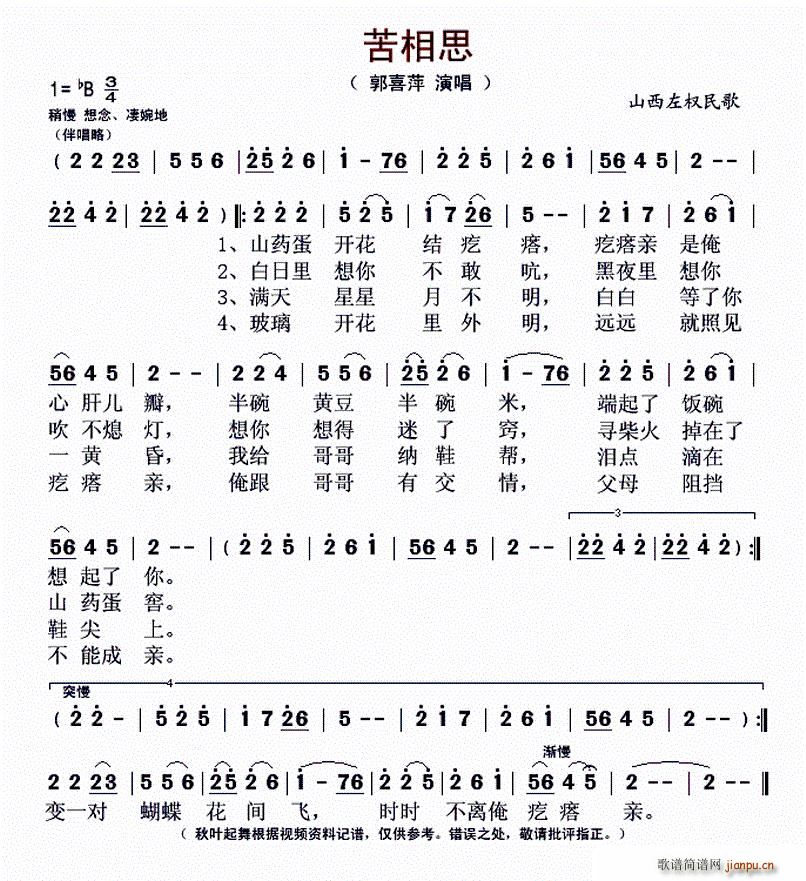 苦相思
（ 郭喜萍 演唱 ）
1= ♭B 3/4
山西左权民歌
稍慢 想念、凄婉地
（伴唱略）
( 2 2 23 | 5 5 6 | 25 2 6 | 1 - 76 | 2 2 5 | 2 6 1 | 56 4 5 | 2 - - |
22 4 2 | 22 4 2 ) ‖: 2 2 2 | 5 2 5 | 1 7 26 | 5 - - | 2 1 7 | 2 6 1 |
1、山药蛋 开花 结 疙 瘩， 疙瘩亲 是俺
2、白日里 想你 不 敢 吭， 黑夜里 想你
3、满天 星星 月 不 明， 白白 等了你
4、玻璃 开花 里 外 明， 远远 就照见
56 4 5 | 2 - - | 2 2 4 | 5 5 6 | 25 2 6 | 1 - 76 | 2 2 5 | 2 6 1 |
心 肝儿 瓣， 半碗 黄豆 半 碗 米， 端起了 饭碗
吹 不熄 灯， 想你 想得 迷 了 窍， 寻柴火 掉在了
一 黄 昏， 我给 哥哥 纳 鞋 帮， 泪点 滴在
疙 瘩 亲， 俺跟 哥哥 有 交 情， 父母 阻挡
3
56 4 5 | 2 - - | ( 2 2 5 | 2 6 1 | 56 4 5 | 2 - - | 22 4 2 | 22 4 2 ) :‖
想 起了 你。
山 药蛋 窖。
鞋 尖 上。
不 能成 亲。
4
突慢
( 2 2 - | 5 2 5 | 1 7 26 | 5 - - | 2 1 7 | 2 6 1 | 56 4 5 | 2 - - ) :‖
渐慢
2 2 23 | 5 5 6 | 25 2 6 | 1 - 76 | 2 2 5 | 2 6 1 | 56 4 5 | 2 - - | 2 - - ‖
变一对 蝴蝶 花 间 飞， 时时 不离俺 疙 瘩 亲。
（ 秋叶起舞根据视频资料记谱，仅供参考。错误之处，敬请批评指正。）
歌谱简谱网 jianpu.cn